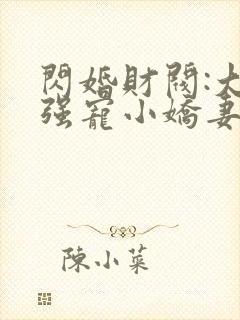 閃婚財閥:大
强寵小嬌妻
陳小菜